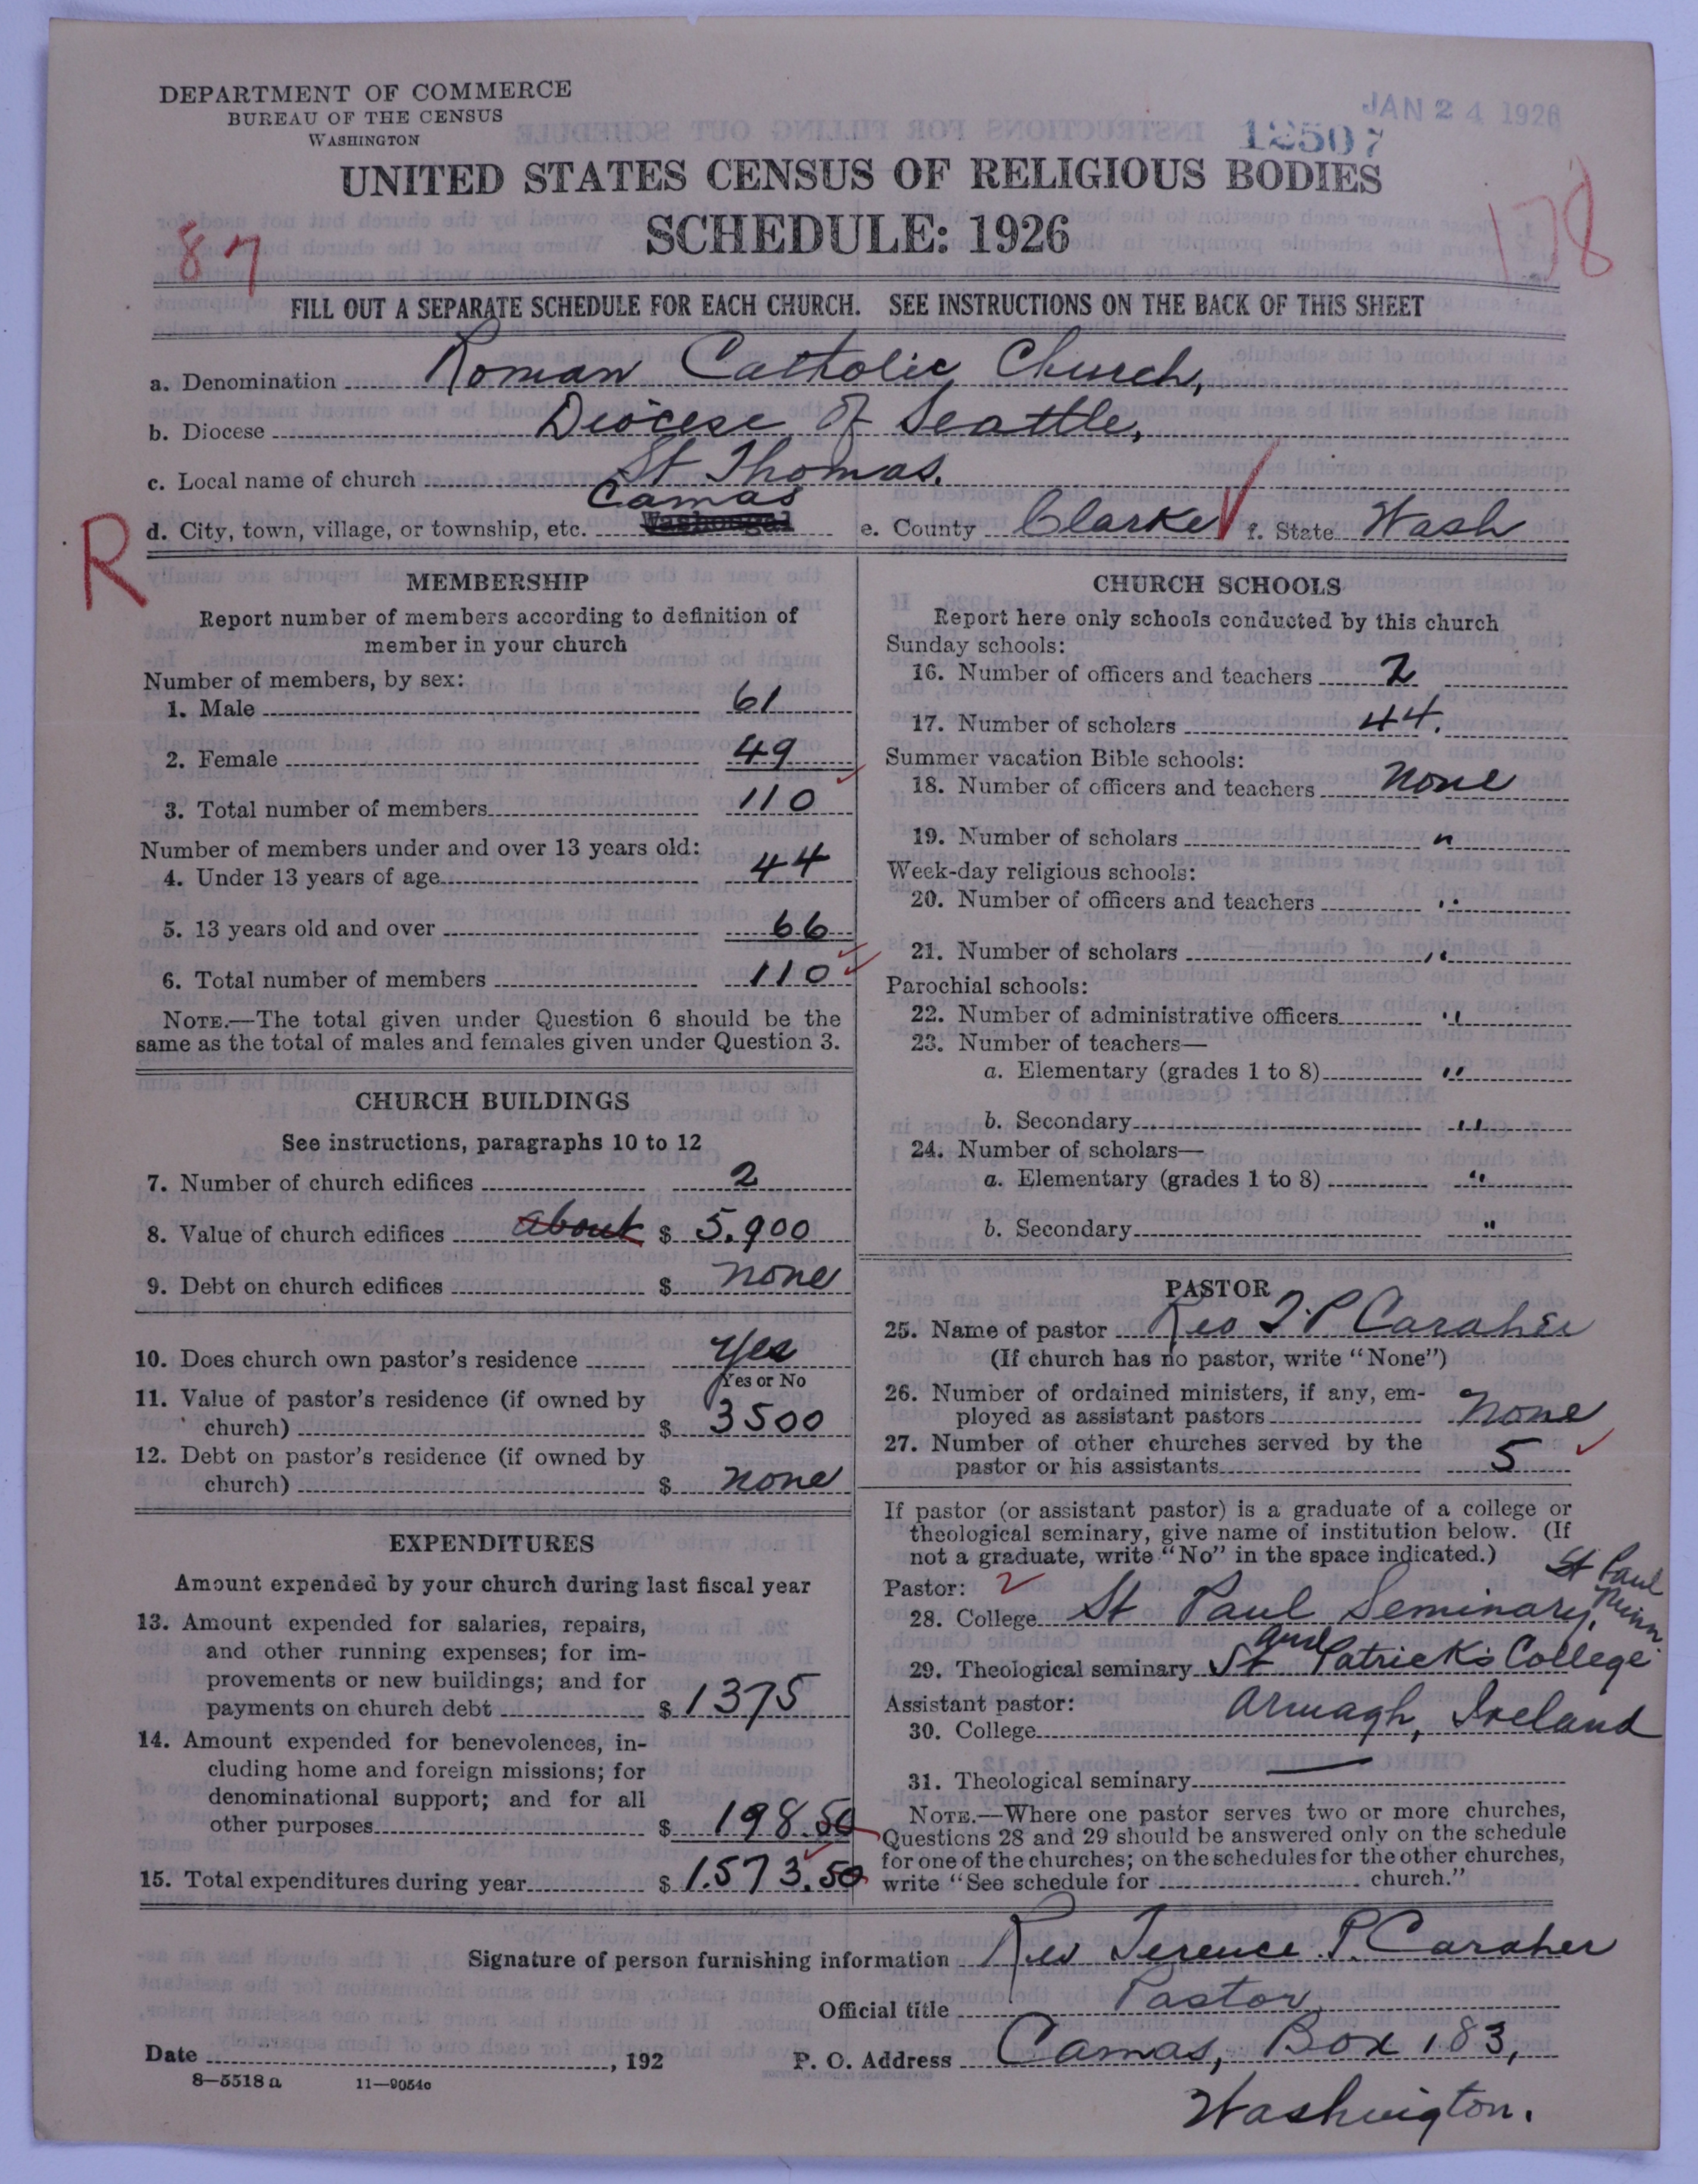 DEPARTMENT OF COMMERCE
BUREAU OF THE CENSUS
WASHINGTON
JAN 24 1926
12507
UNITED STATES CENSUS OF RELIGIOUS BODIES
SCHEDULE: 1926
87
178
FILL OUT A SEPARATE SCHEDULE FOR EACH CHURCH. SEE INSTRUCTIONS ON THE BACK OF THIS SHEET
a. Denomination Roman Catholic Church,
b. Diocese Diocese of Seattle,
c. Local name of church St Thomas.
Camas
R
d. City, town, village, or township, etc. Washougal e. County Clarke f. State Wash
MEMBERSHIP
Report number of members according to definition of
member in your church
Number of members, by sex:
1. Male 61
2. Female 49
3. Total number of members 110
Number of members under and over 13 years old:
4. Under 13 years of age 44
5. 13 years old and over 66
6. Total number of members 110
NOTE.—The total given under Question 6 should be the
same as the total of males and females given under Question 3.
CHURCH BUILDINGS
See instructions, paragraphs 10 to 12
7. Number of church edifices 2
8. Value of church edifices about $ 5.900
9. Debt on church edifices $ none
10. Does church own pastor's residence yes
Yes or No
11. Value of pastor's residence (if owned by
church) $ 3500
12. Debt on pastor's residence (if owned by
church) $ none
EXPENDITURES
Amount expended by your church during last fiscal year
13. Amount expended for salaries, repairs,
and other running expenses; for im-
provements or new buildings; and for
payments on church debt $ 1375
14. Amount expended for benevolences, in-
cluding home and foreign missions; for
denominational support; and for all
other purposes $ 198.50
15. Total expenditures during year $ 1.573.50
CHURCH SCHOOLS
Report here only schools conducted by this church
Sunday schools:
16. Number of officers and teachers 2
17. Number of scholars 44.
Summer vacation Bible schools:
18. Number of officers and teachers none
19. Number of scholars "
Week-day religious schools:
20. Number of officers and teachers "
21. Number of scholars "
Parochial schools:
22. Number of administrative officers "
23. Number of teachers—
a. Elementary (grades 1 to 8) "
b. Secondary "
24. Number of scholars—
a. Elementary (grades 1 to 8) "
b. Secondary "
PASTOR
25. Name of pastor Rev T. P Caraher
(If church has no pastor, write "None")
26. Number of ordained ministers, if any, em-
ployed as assistant pastors none
27. Number of other churches served by the
pastor or his assistants 5
If pastor (or assistant pastor) is a graduate of a college or
theological seminary, give name of institution below. (If
not a graduate, write "No" in the space indicated.)
Pastor:
28. College St Paul Seminary, St Paul Minn
and
29. Theological seminary St Patricks College
Assistant pastor: Armagh, Ireland
30. College
31. Theological seminary —
NOTE.—Where one pastor serves two or more churches,
Questions 28 and 29 should be answered only on the schedule
for one of the churches; on the schedules for the other churches,
write "See schedule for church."
Signature of person furnishing information Rev Terence P. Caraher
Official title Pastor
Date , 192 P. O. Address Camas, Box 183,
8—5518 a 11—9054c
Washington.